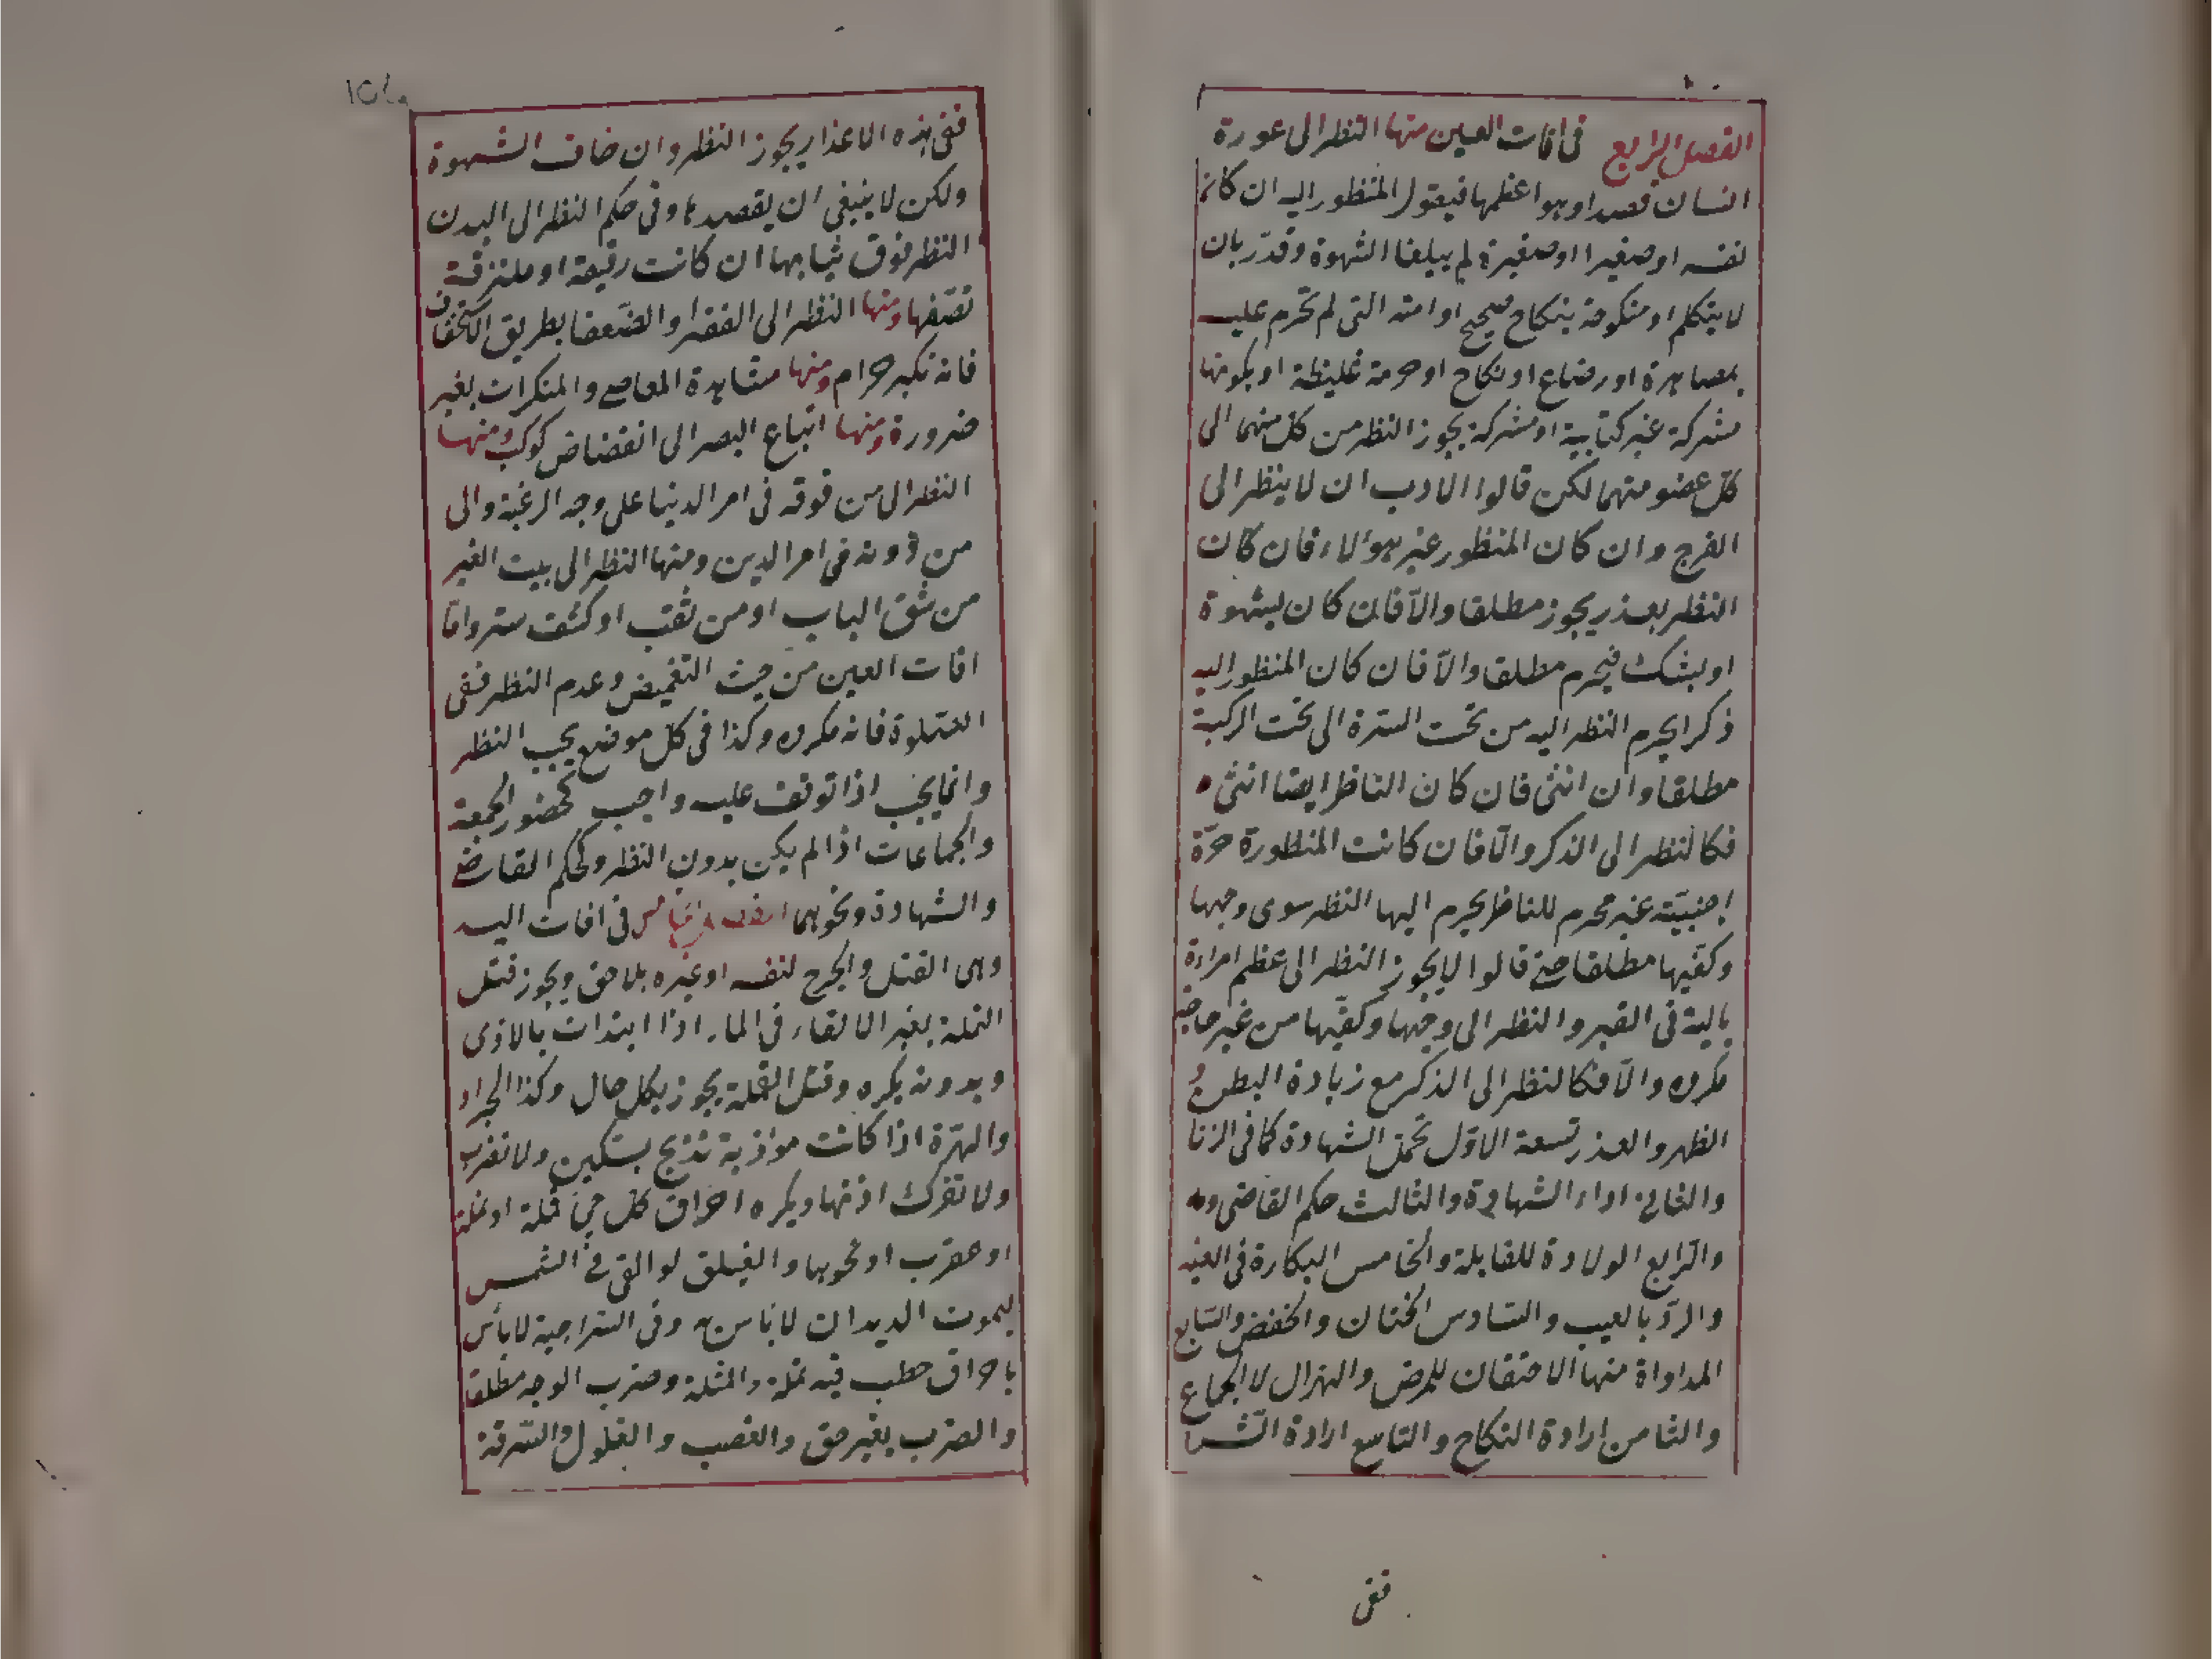 الفصل الرابع في افات العين منها النظر الى عورة
انسان قصدا وهو اعظمها فيقول المنظور اليه ان كان
نفسه او صغيرا او صغيرة لم يبلغا الشهوة وقدّر بان
لا يتكلم او منكوحة بنكاح صحيح او امته التي لم تحرّم عليه
بمصاهرة او رضاع او نكاح او حرمة غليظة او بكونها
مشركة غير كتابية او مشركة يجوز النظر من كل منهما الى
كلّ عضو منهما لكن قالوا الادب ان لا ينظر الى
الفرج وان كان المنظور غير هؤلاء فان كان
النظر بعذر يجوز مطلقا والاّ فان كان بشهوة
او بشك فيحرم مطلقا والاّ فان كان المنظور اليه
ذكرا يحرم النظر اليه من تحت السترة الى تحت الركبة
مطلقا وان انثى فان كان الناظر ايضا انثى
فكالنظر الى الذكر والاّ فان كانت المنظورة حرّة
اجنبيّة غير محرم للناظر يحرم اليها النظر سوى وجهها
وكفيها مطلقا حتى قالوا لا يجوز النظر الى عظم امراءة
بالية في القبر والنظر الى وجهها وكفّيها من غير حاجة
مكروه والاّ فكالنظر الى الذكر مع زيادة البطن و
الظهر والعذر تسعة الاوّل تحمّل الشهادة كما في الزنا
والثاني اداء الشهادة والثالث حكم القاضي
والرّابع الولادة للقابلة والخامس البكارة في العنة
والردّ بالعيب والسادس الختان والخفض والسّابع
المداواة منها الاحتقان للمرض والهزال لا الجماع
والثامن ارادة النكاح والتاسع ارادة الشرا
ففي
١٥٤
ففي هذه الاعذار يجوز النظر وان خاف الشهوة
ولكن لا ينبغي ان يقصدها وفي حكم النظر الى البدن
النظر فوق ثيابها ان كانت رقيقة او ملتزقة
تصفها ومنها النظر الى الفقرا والضّعفا بطريق الاستخفاف
فانه تكبر حرام ومنها مشاهدة المعاصي والمنكرات بغير
ضرورة ومنها اتباع البصر الى انقضاض كوكب ومنها
النظر الى من فوقه في امر الدنيا على وجه الرغبة والى
من دونه في امر الدين ومنها النظر الى بيت الغير
من شقّ الباب او من ثقب او كشف ستر وامّا
افات العين من حيث التغميض وعدم النظر ففي
الصّلوة فانه مكروه وكذا في كلّ موضع يجب النظر
وانما يجب اذا توقف عليه واجب كحضور الجمعة
والجماعات اذا لم يكن بدون النظر وكحكم القاضي
والشهادة ونحوهما الفصل الخامس في افات اليد
وهي القتل والجرح لنفسه او غيره بلا حق ويجوز قتل
النملة بغير الالقاء في الماء اذا ابتدات بالاذى
وبدونه يكره وقتل القملة يجوز بكل حال وكذا الجراد
والهرّة اذا كانت مؤذية تذبح بسكين ولا تضرب
ولا تفرك اذنها ويكره احراق كل حيّ قملة او نملة
او عقرب او نحوها والفيلق لو القي في الشمس
ليموت الديدان لا باس به وفي السّراجية لا بأس
باحراق حطب فيه نملة والمثلة وضرب الوجه مطلقا
والضرب بغير حق والغصب والغلول والسّرقة